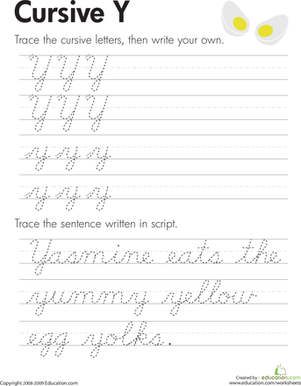 Cursive Y
Trace the cursive letters, then write your own.
Y Y Y
Y Y Y
y y y
y y y
Trace the sentence written in script.
Yasmine eats the
yummy yellow
egg yolks.
Created by : education.com
Copyright 2008-2009 Education.com
www.education.com/worksheets